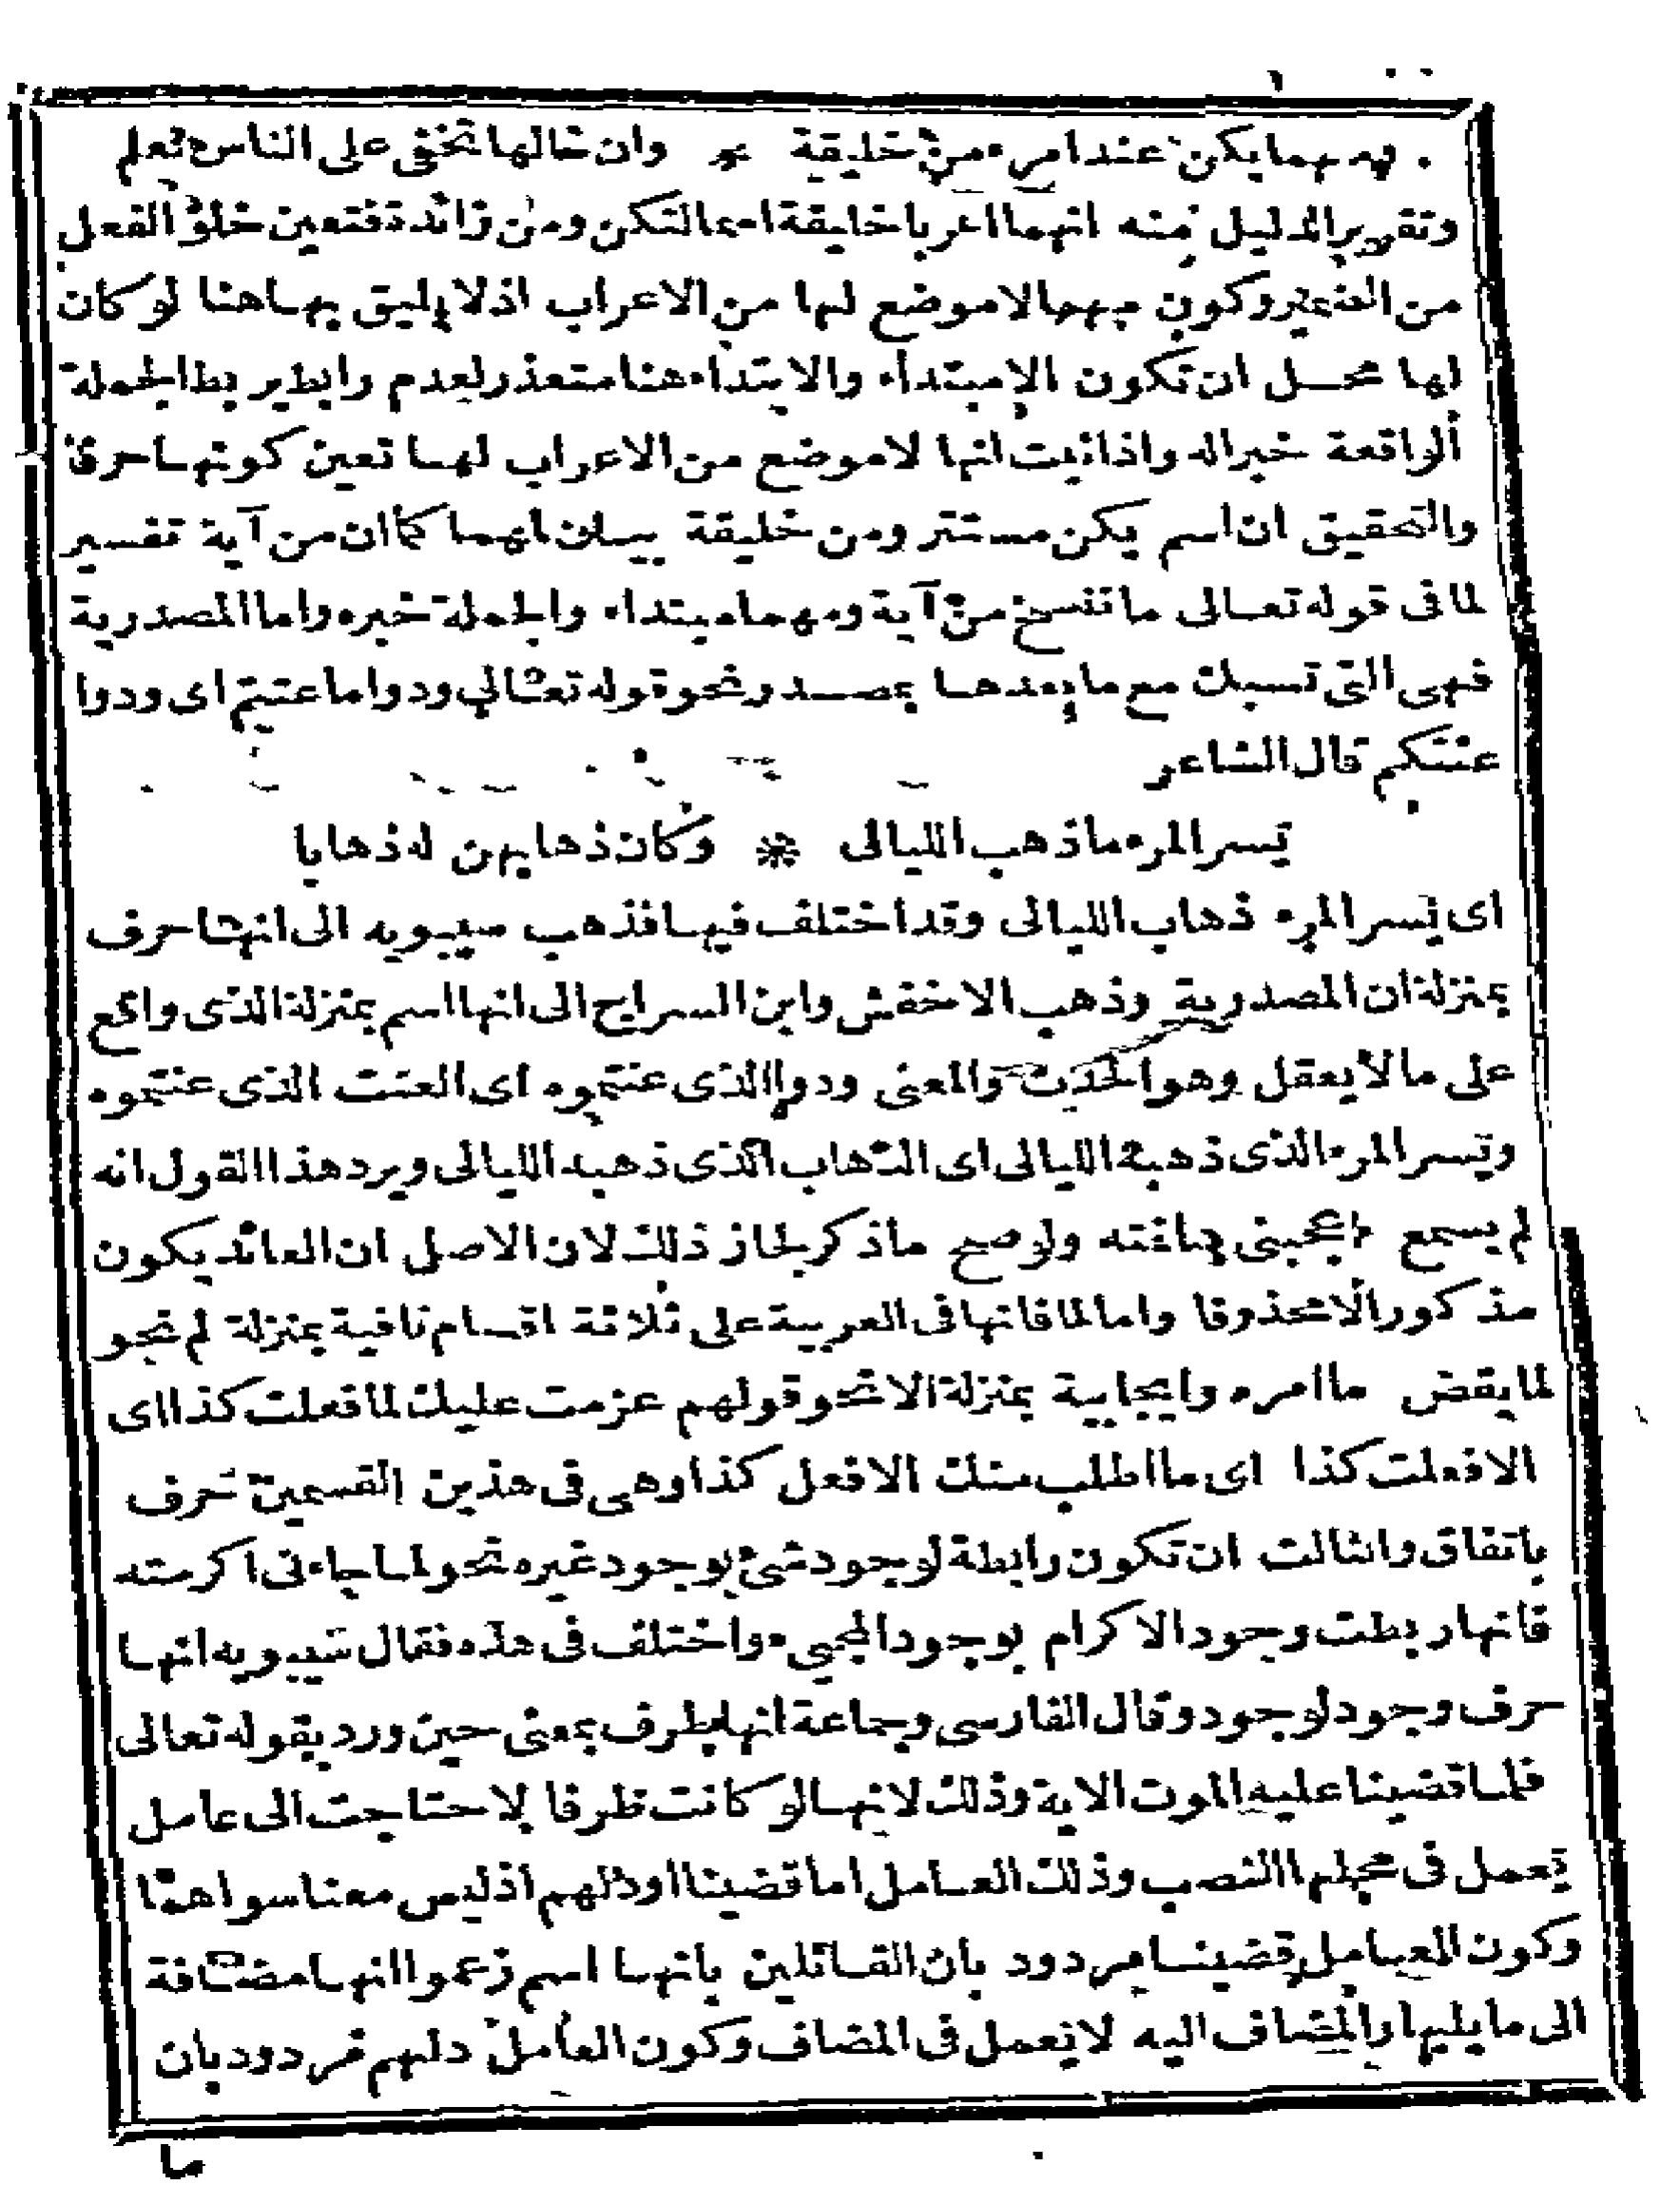 ومهما يكن عند امرء من خليقة * وان خالها تخفى على الناس تعلم
وتقرير الدليل منه انهما اعربا خليقة اسما لتكن ومن زائدة فتعين خلو الفعل
من الضمير وكون مهما لا موضع لها من الاعراب اذ لا يليق بها هنا لو كان
لها محل ان تكون الا مبتدأ والابتداء هنا متعذر لعدم رابط يربط الجملة
الواقعة خبرا له واذا ثبت انها لا موضع من الاعراب لها تعين كونها حرفا
والتحقيق ان اسم يكن مستتر ومن خليقة بيان لمهما كما ان من آية تفسير
لما فى قوله تعالى ما ننسخ من آية ومهما مبتداء والجملة خبره واما المصدرية
فهى التى تسبك مع ما بعدها بمصدر نحو قوله تعالى ودوا ما عنتم اى ودوا
عنتكم قال الشاعر
يسر المرء ما ذهب الليالى * وكان ذهابهن له ذهابا
اى يسر المرء ذهاب الليالى وقد اختلف فيها فذهب سيبويه الى انها حرف
بمنزلة ان المصدرية وذهب الاخفش وابن السراج الى انها اسم بمنزلة الذى واقع
على ما لا يعقل وهو الحدث والمعنى ودوا الذى عنتموه اى العنت الذى عنتموه
ويسر المرء الذى ذهبه الليالى اى الذهاب الذى ذهبه الليالى ويرد هذا القول انه
لم يسمع اعجبنى ما قمته ولو صح ما ذكر لجاز ذلك لان الاصل ان العائد يكون
مذكورا لا محذوفا واما لما فانها فى العربية على ثلاثة اقسام نافية بمنزلة لم نحو
لما يقض ما امره وايجابية بمنزلة الا نحو قولهم عزمت عليك لما فعلت كذا اى
الا فعلت كذا اى ما اطلب منك الا فعل كذا وهى فى هذين القسمين حرف
باتفاق والثالث ان تكون رابطة لوجود شئ بوجود غيره نحو لما جاءنى اكرمته
فانها ربطت وجود الاكرام بوجود المجيء واختلف فى هذه فقال سيبويه انها
حرف وجود لوجود وقال الفارسى وجماعة انها ظرف بمعنى حين ورد بقوله تعالى
فلما قضينا عليه الموت الاية وذلك لانها لو كانت ظرفا لاحتاجت الى عامل
يعمل فى محلها النصب وذلك العامل اما قضينا او دلهم اذ ليس معنا سواهما
وكون العامل قضينا مردود بان القائلين بانها اسم زعموا انها مضافة
الى ما يليها والمضاف اليه لا يعمل فى المضاف وكون العامل دلهم مردود بان
ما